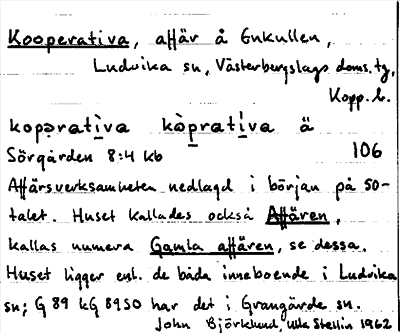 Kooperativa, affär å Enkullen,
Ludvika sn, Västerbergslags doms. tg,
Kopp. l.
kopərati̱va kòpṟati̱va ä
Sörgården 8:4 kb 106
Affärsverksamheten nedlagd i början på 50-
talet. Huset kallades också Affären,
kallas numera Gamla affären, se dessa.
Huset ligger enl. de båda inneboende i Ludvika
sn; G 89 kG 8950 har det i Grangärde sn.
John Björklund, Ulla Stellin 1962